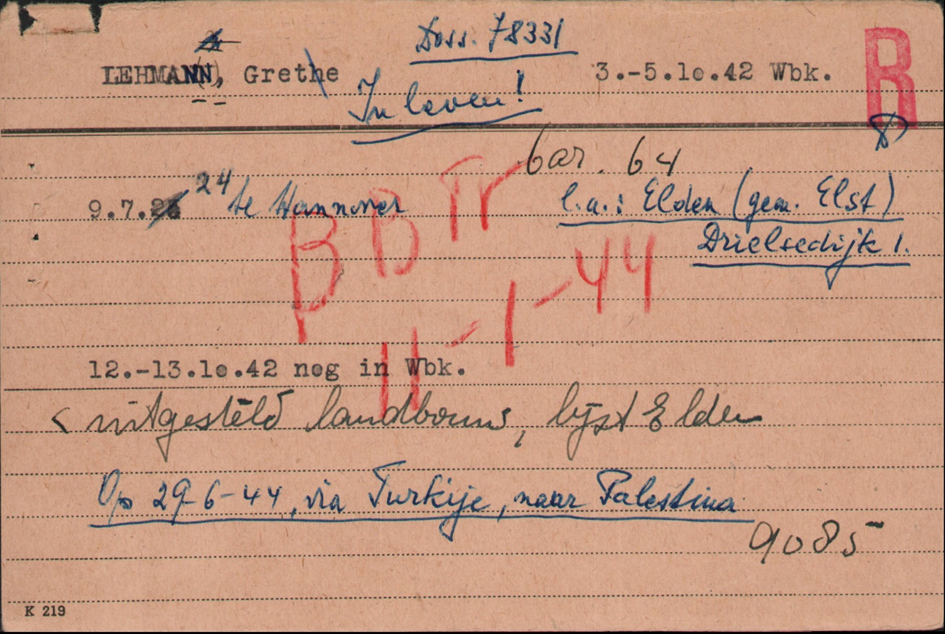 Doss. 78331
LEHMANN, Grethe 3.-5.10.42 Wbk. R
In leven!
bar. 64
9.7. 24 te Hannover l.a.: Elden (gem. Elst)
Drielsedijk 1.
BB Tr
11-1-44
12.-13.10.42 nog in Wbk.
< uitgesteld landbouw, lijst Elden
Op 29-6-44, via Turkije, naar Palestina
9085
K 219